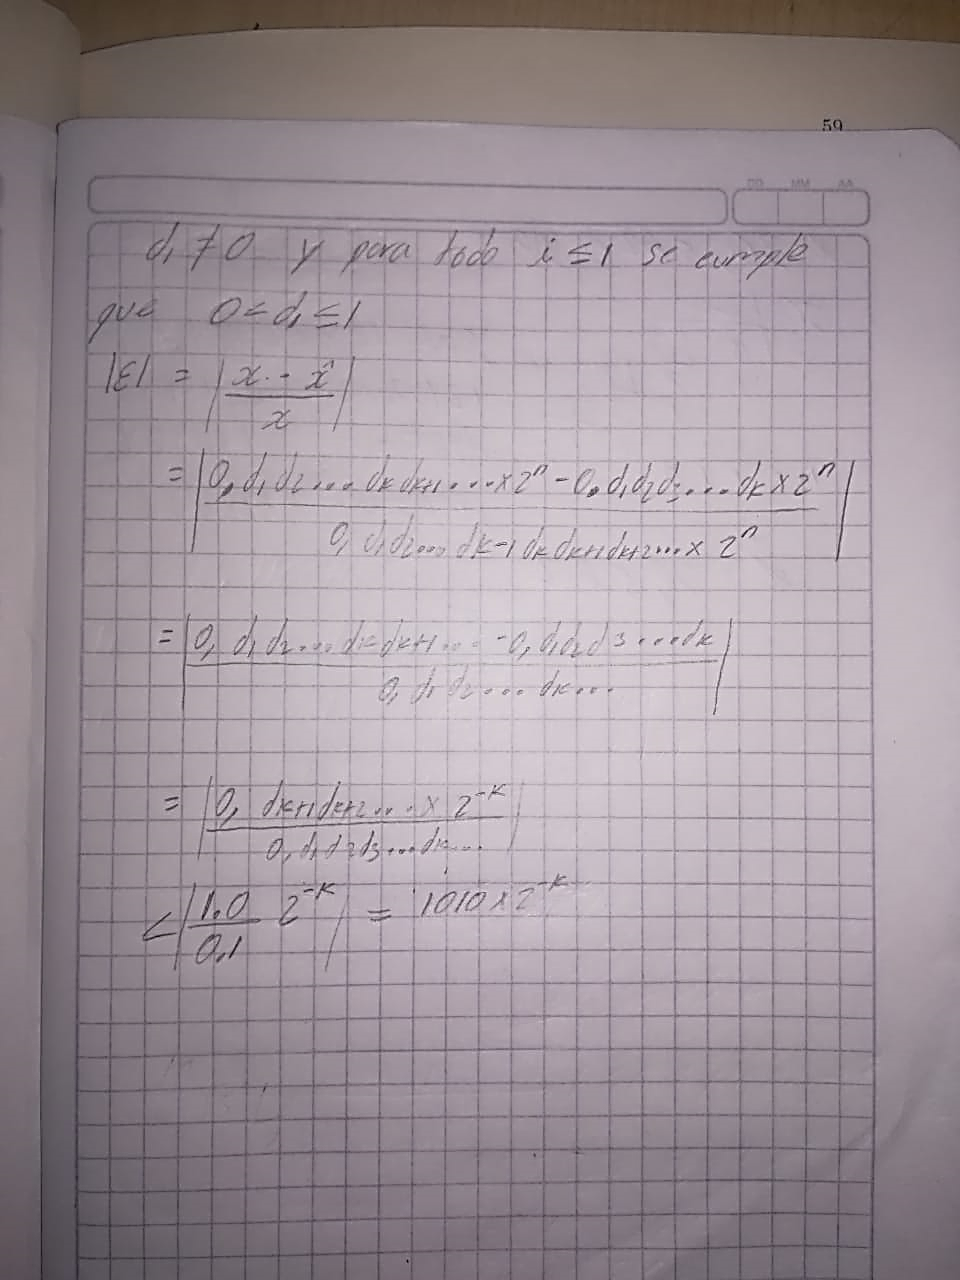 59
DD MM AA
d₁ ≠ 0 y para todo i ≤ 1 se cumple
que 0 < d₁ ≤ 1
|ε| = | (x - x̂) / x |
= | (0,d₁d₂...dₖdₖ₊₁...×2ⁿ - 0,d₁d₂d₃...dₖ×2ⁿ) / (0,d₁d₂...dₖ₋₁dₖdₖ₊₁dₖ₊₂...× 2ⁿ) |
= | (0,d₁d₂...dₖdₖ₊₁... - 0,d₁d₂d₃...dₖ) / (0,d₁d₂...dₖ...) |
= | (0,dₖ₊₁dₖ₊₂...× 2⁻ᴷ) / (0,d₁d₂d₃...dₖ...) |
< | (1.0 / 0,1) 2⁻ᴷ | = 1010×2⁻ᴷ